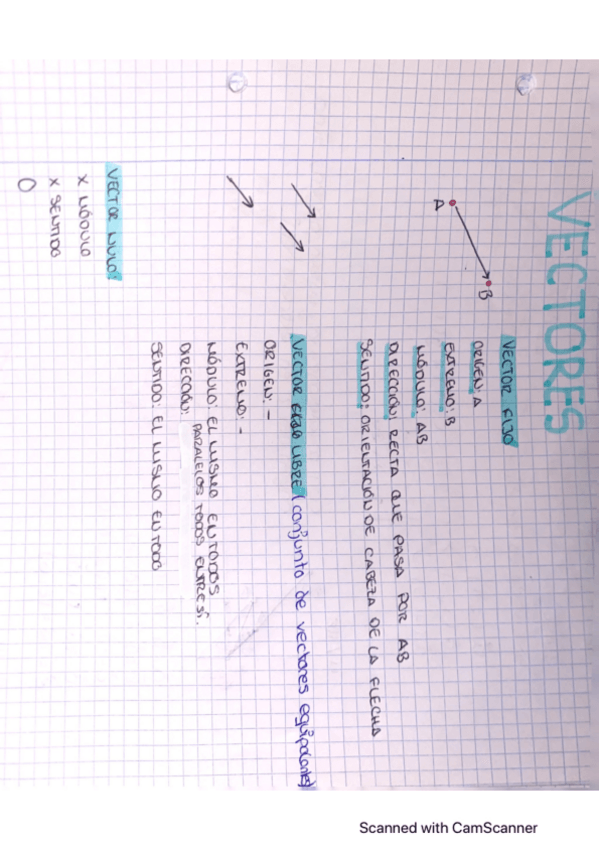 VECTORES
A
B
VECTOR FIJO
ORIGEN: A
EXTREMO: B
MÓDULO: AB
DIRECCIÓN: RECTA QUE PASA POR AB
SENTIDO: ORIENTACIÓN DE CABEZA DE LA FLECHA
VECTOR LIBRE (conjunto de vectores equipolentes)
ORIGEN: -
EXTREMO: -
MÓDULO: EL MISMO EN TODOS
DIRECCIÓN: PARALELOS TODOS ENTRE SÍ.
SENTIDO: EL MISMO EN TODO
VECTOR NULO:
X MÓDULO
X SENTIDO
O
Scanned with CamScanner